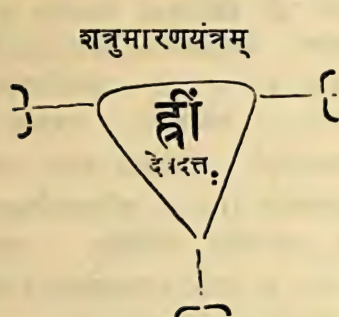 शत्रुमारणयंत्रम्
ह्रीं
देवदत्तः